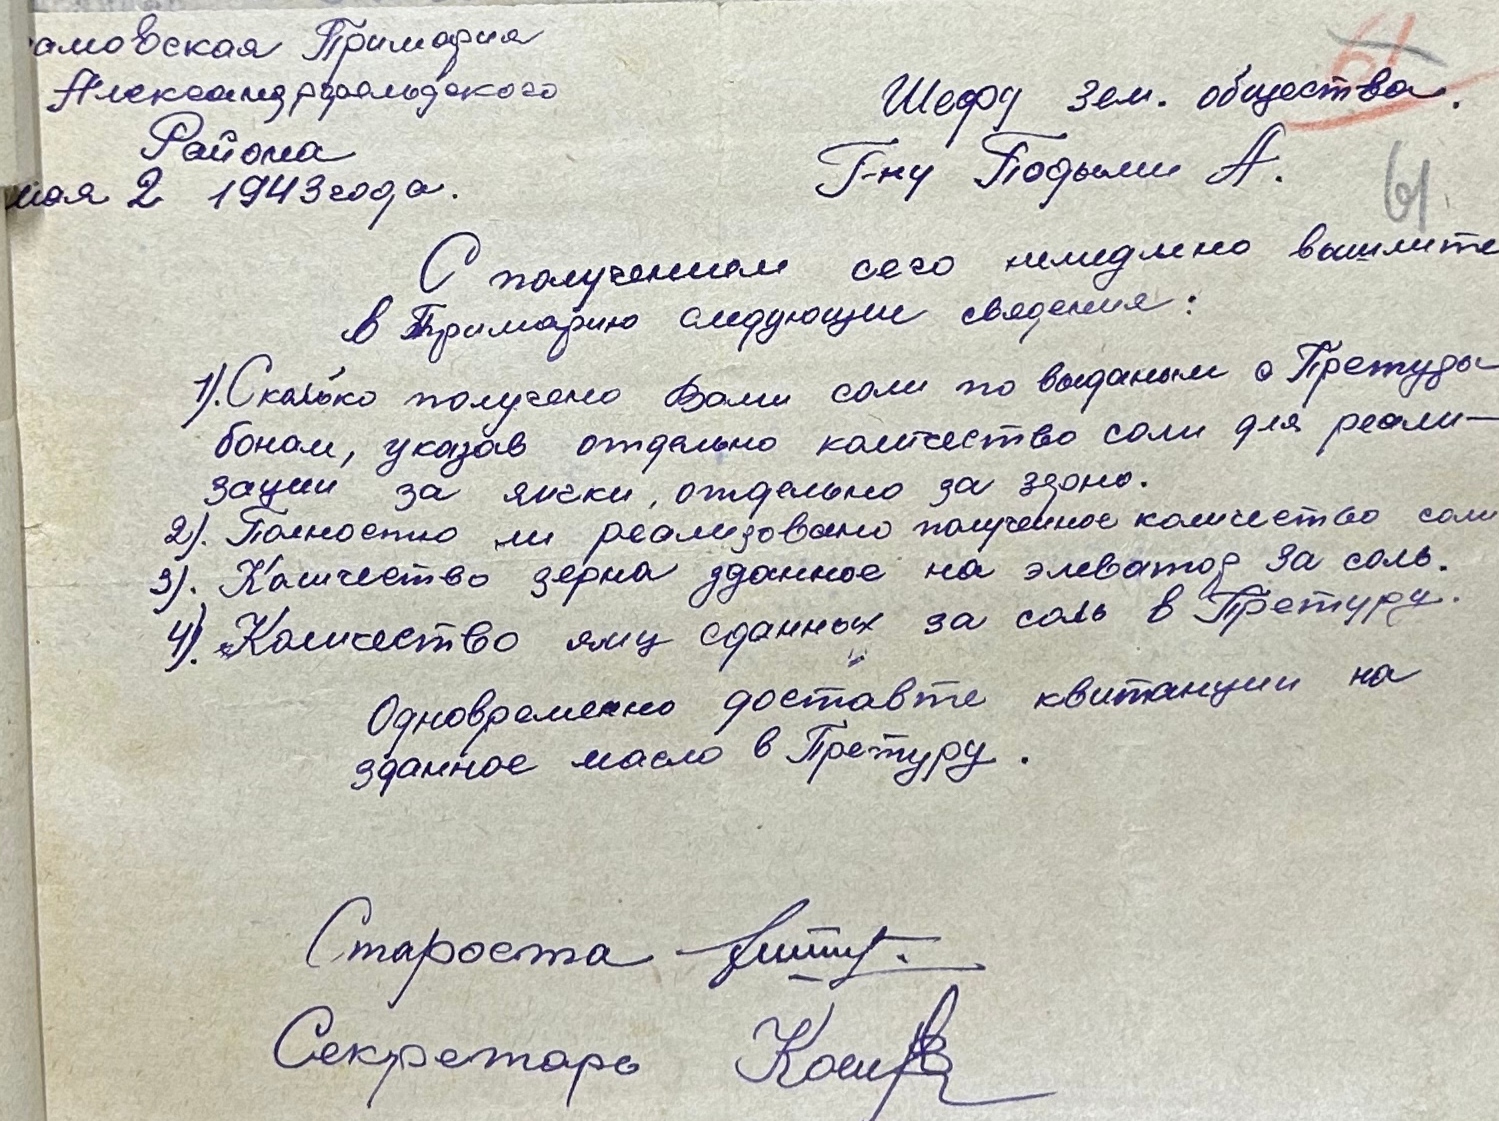 амовская Примария
Александрфельдского
Района
мая 2 1943 года.
61
Шефу зем. общества.
Г-ну Подыми А.
61
С получением сего немедлено вышлите
в Примарию следующии сведения:
1). Сколько получено Вами соли по выданым с Претуры
бонам, указав отдельно количество соли для реали-
зации за яички, отдельно за зерно.
2). Полностю ли реализовано полученное количество соли
3). Количество зерна зданное на элеватор за соль.
4). Количество яиц сданных за соль в Претуру.
Одновременно доставте квитанции на
зданное масло в Претуру.
Староста
Секретарь